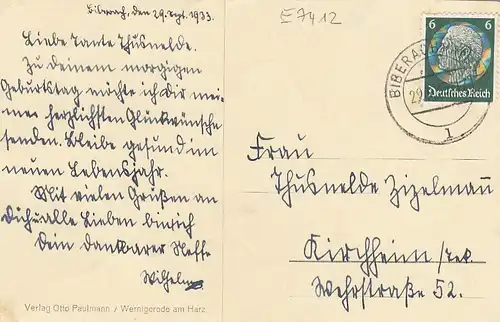 Biberach, den 29. Sept. 1933.
Liebe Tante Thusnelde.
Zu deinem morgigen
Geburtstag möchte ich Dir mei-
nen herzlichsten Glückwünsche
senden. Bleibe gesund im
neuen Lebensjahr.
Mit vielen Grüßen an
Dich u. alle Lieben bin ich
Dein dankbarer Neffe
Wilhelm
Verlag Otto Paulmann / Wernigerode am Harz
E7412
6 6
Deutsches Reich
BIBERACH
29.
1
Frau
Thusnelde Zizelmann
Kirchheim /Tek.
Wehrstraße 52.